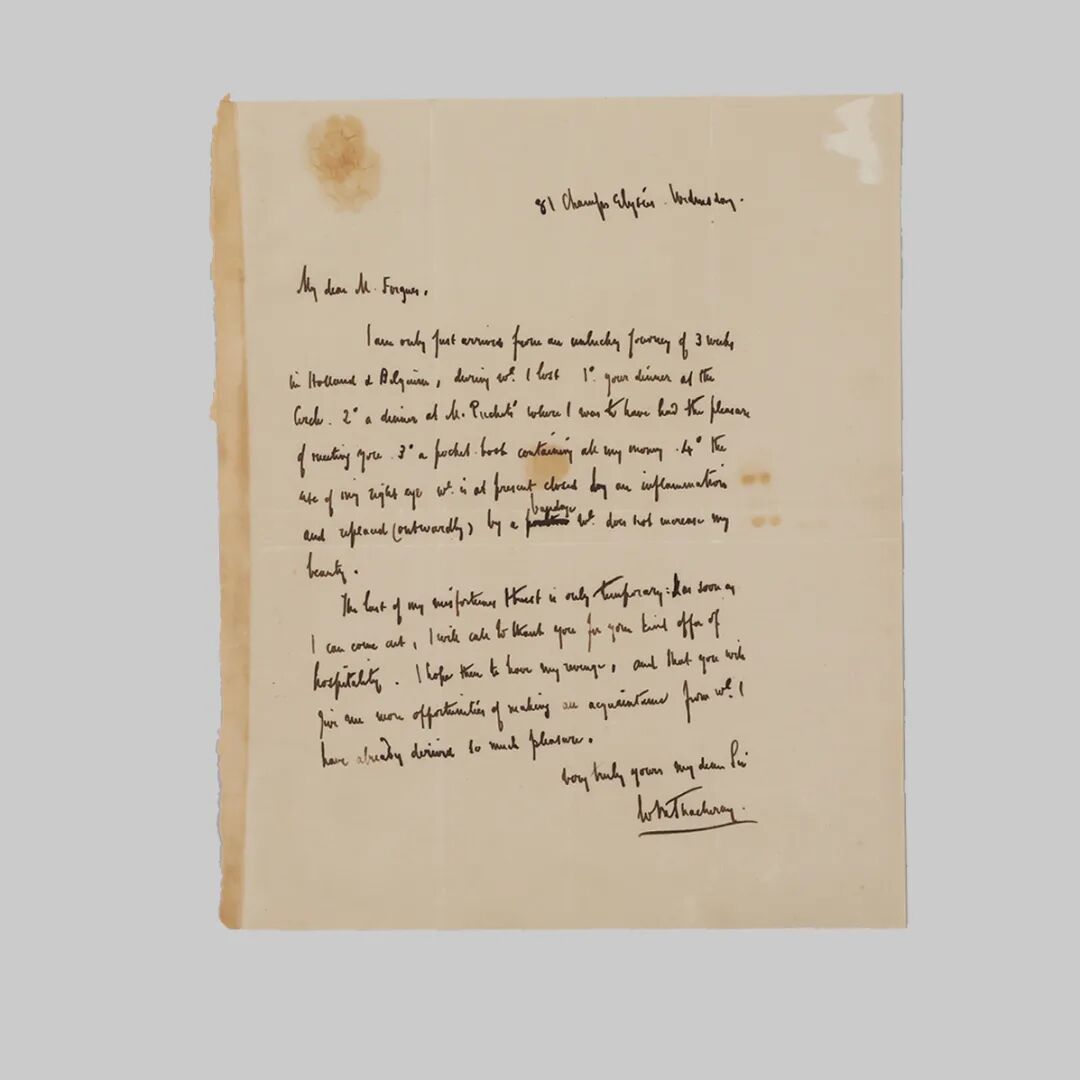 81 Champs Elysées. Wednesday.
My dear M. Forgues.
I am only just arrived from an unlucky journey of 3 weeks
in Holland & Belgium, during wh. I lost 1° your dinner at the
2° a dinner at M. where I was to have had the pleasure
of meeting you 3° a pocket-book containing all my money. 4° the
use of my right eye wh. is at present closed by an inflammation
and replaced (outwardly) by a bandage wh. does not increase my
beauty.
The last of my misfortunes is only temporary: as soon as
I can come out, I will call to thank you for your kind offer of
hospitality. I hope then to have my revenge, and that you will
give me more opportunities of making an acquaintance from wh. I
have already derived so much pleasure.
Very truly yours my dear Sir
WMThackeray.